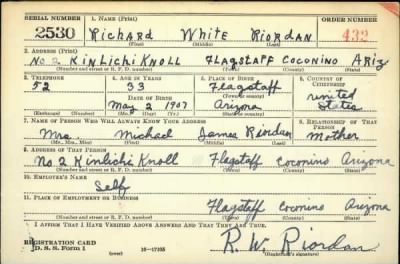 SERIAL NUMBER 1. NAME (Print) ORDER NUMBER
2530 Richard White Riordan 432
(First) (Middle) (Last)
2. ADDRESS (Print)
No. 2 Kinlichi Knoll Flagstaff Coconino Ariz
(Number and street or R. F. D. number) (Town) (County) (State)
3. TELEPHONE 4. AGE IN YEARS 5. PLACE OF BIRTH 6. COUNTRY OF CITIZENSHIP
52 33 Flagstaff United
DATE OF BIRTH
May 2 1907 Arizona States
7. NAME OF PERSON WHO WILL ALWAYS KNOW YOUR ADDRESS 8. RELATIONSHIP OF THAT PERSON
Mrs. Michael James Riordan Mother
(Mr., Mrs., Miss) (First) (Middle) (Last)
9. ADDRESS OF THAT PERSON
No 2 Kinlichi Knoll Flagstaff Coconino Arizona
(Number and street or R. F. D. number) (Town) (County) (State)
10. EMPLOYER'S NAME
Self
11. PLACE OF EMPLOYMENT OR BUSINESS
Flagstaff Coconino Arizona
(Number and street or R. F. D. number) (Town) (County) (State)
I AFFIRM THAT I HAVE VERIFIED ABOVE ANSWERS AND THAT THEY ARE TRUE.
REGISTRATION CARD
D. S. S. Form 1 (over) R. W. Riordan
(Registrant's signature)